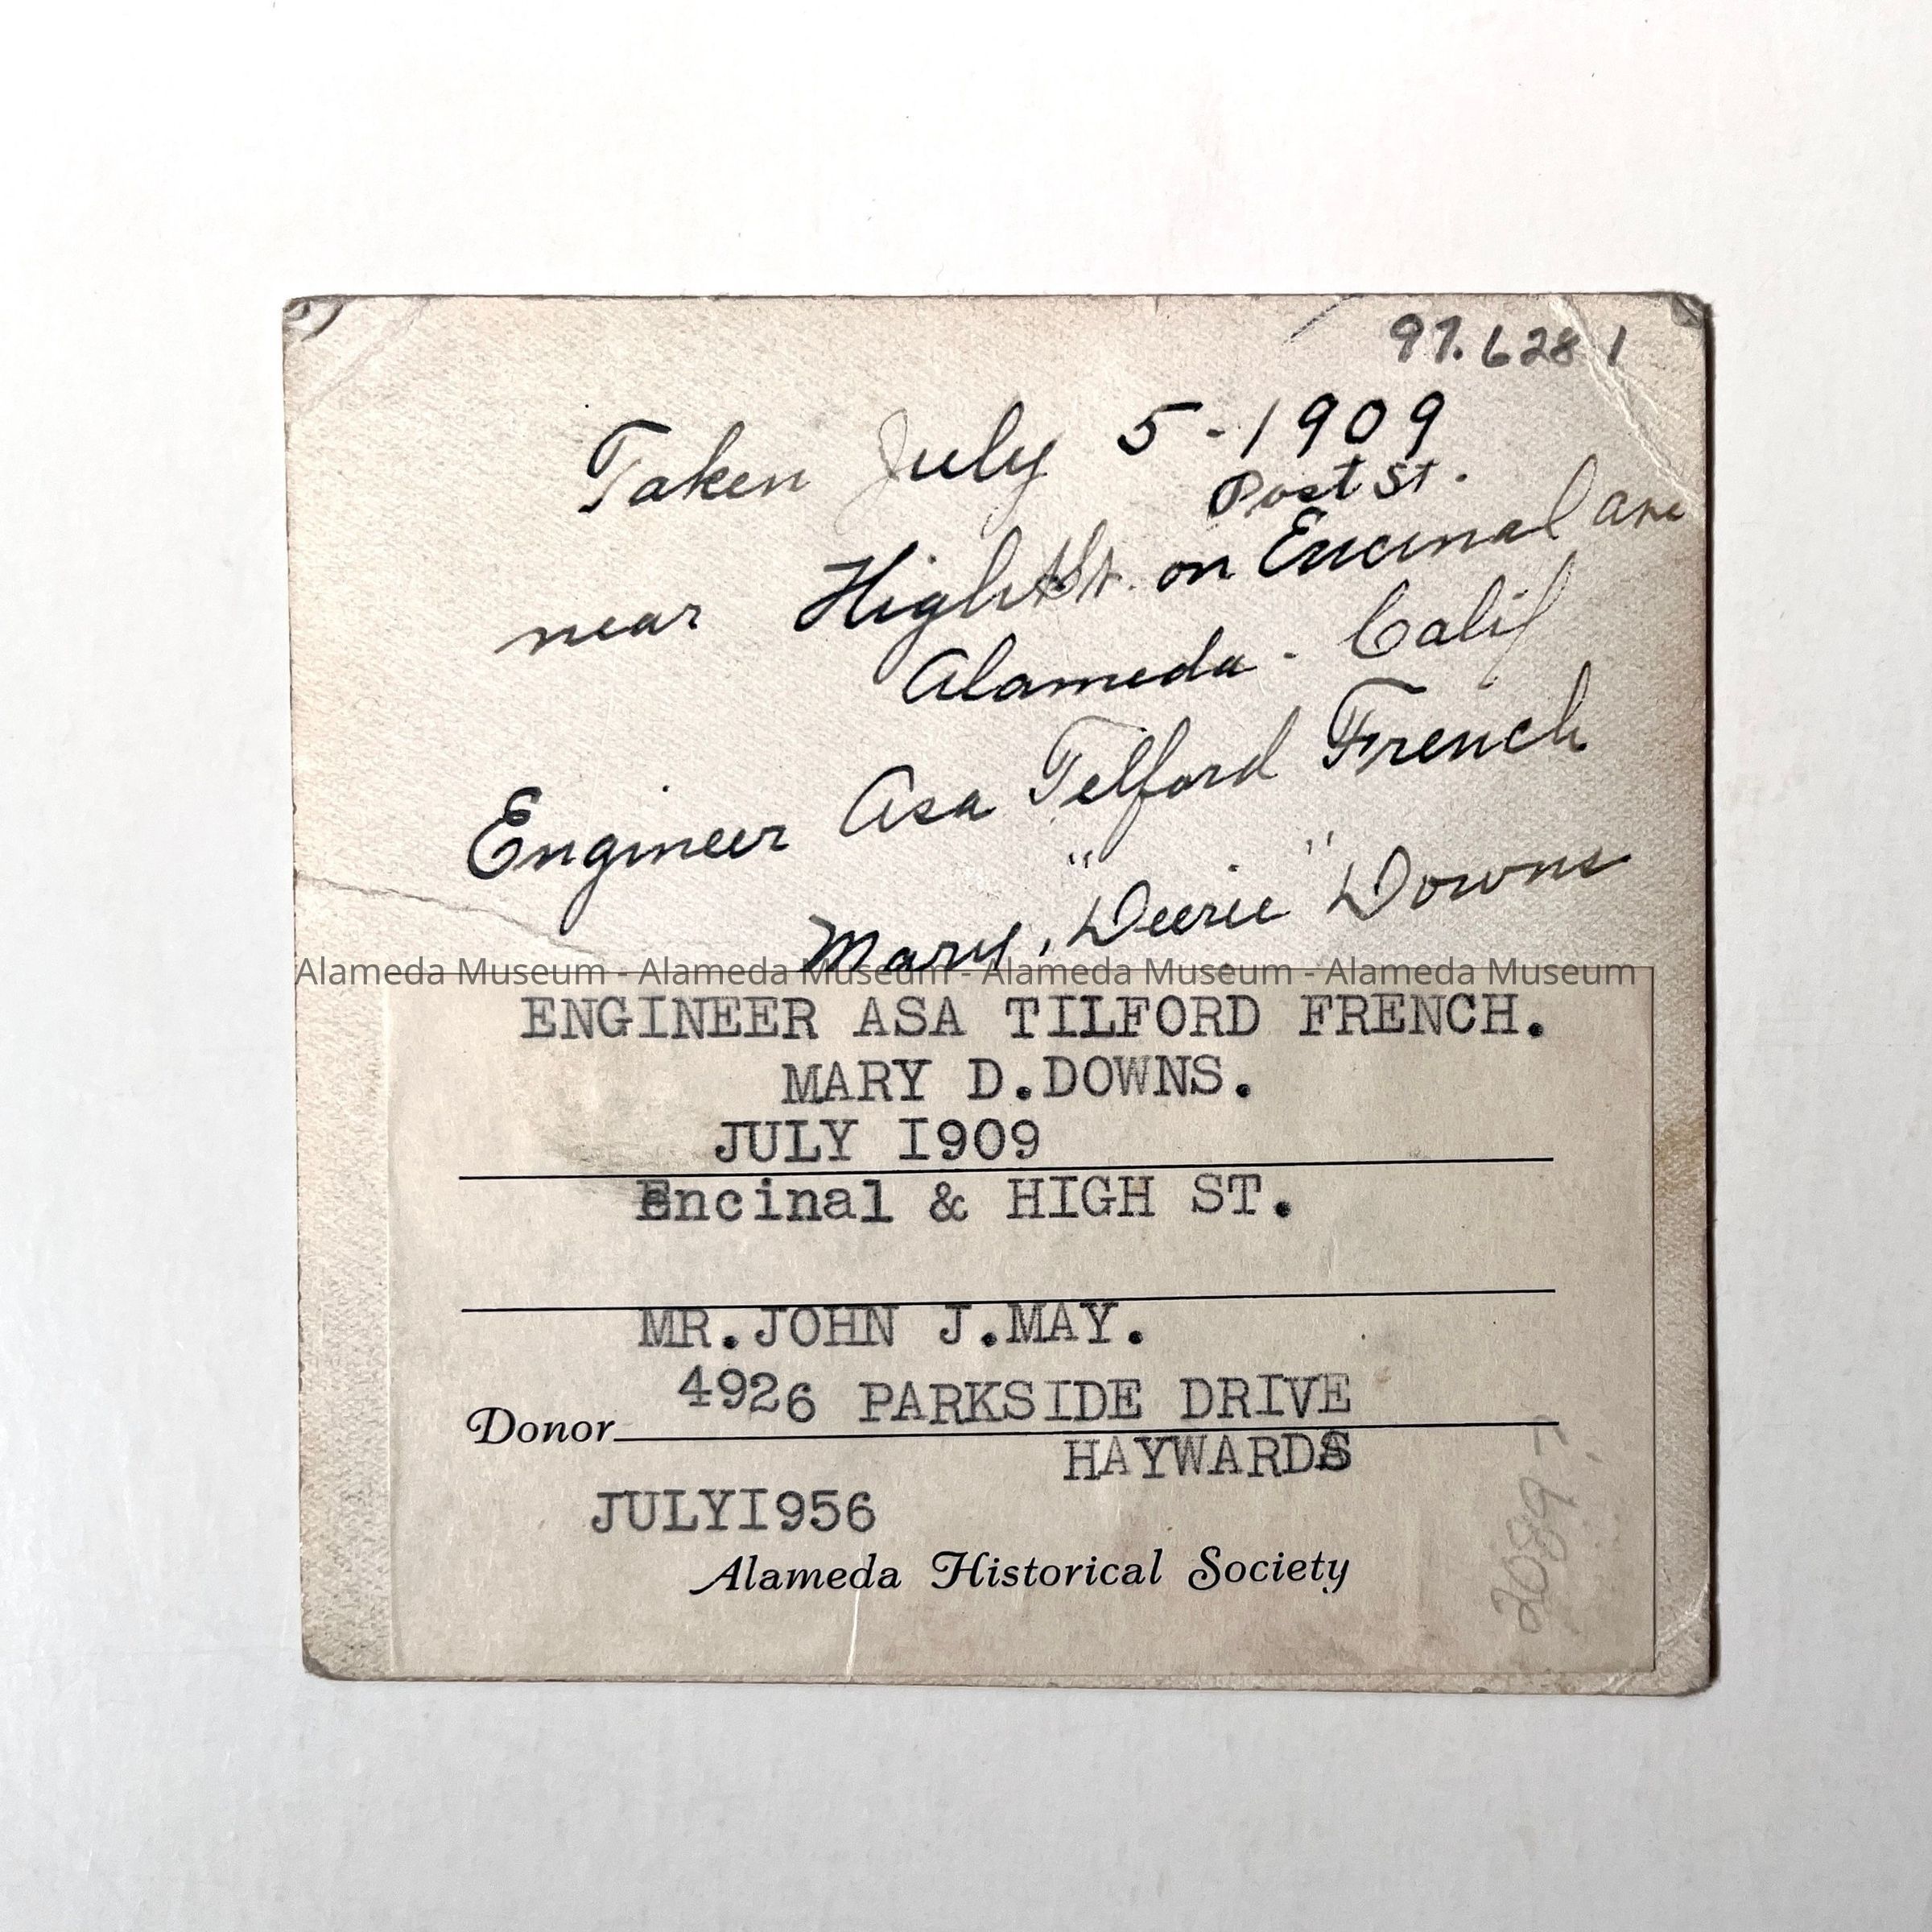 97.6281
Taken July 5-1909
Post St.
near High St. on Encinal ave
Alameda - Calif
Engineer Asa Telford French
Mary, "Deerie" Downs
Alameda Museum - Alameda Museum - Alameda Museum - Alameda Museum
ENGINEER ASA TILFORD FRENCH.
MARY D.DOWNS.
JULY I909
Encinal & HIGH ST.
MR.JOHN J.MAY.
4926 PARKSIDE DRIVE
Donor
HAYWARDS
JULYI956
Alameda Historical Society
2089-7